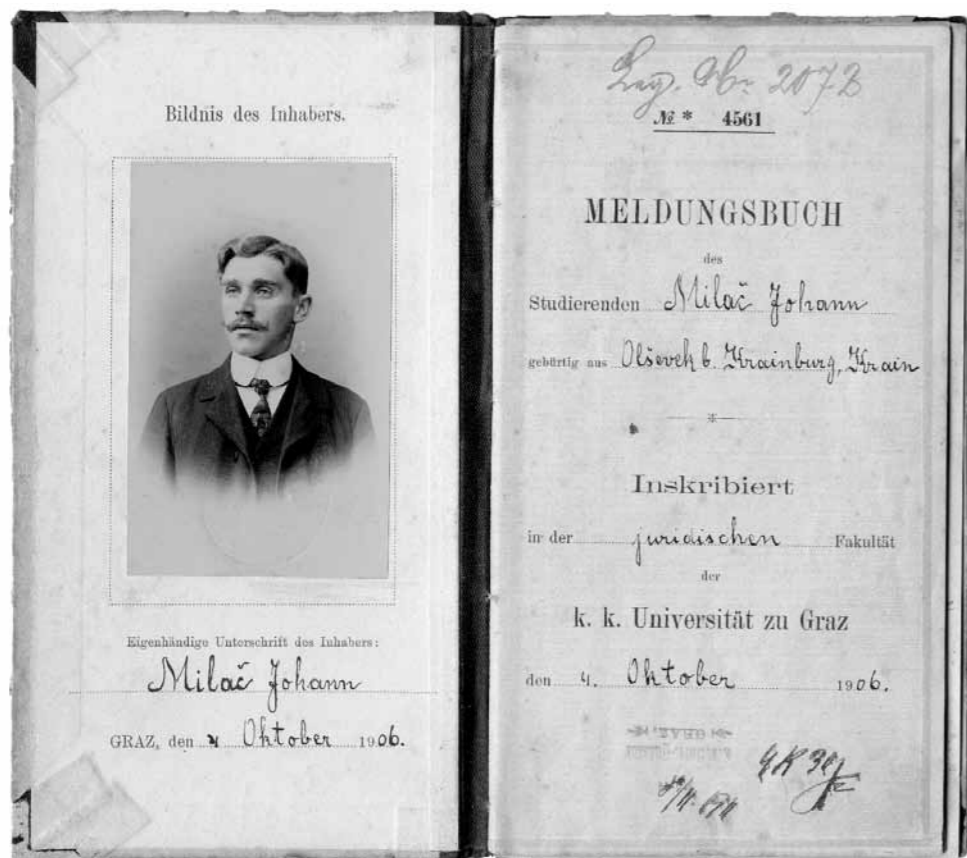 Bildnis des Inhabers.
Eigenhändige Unterschrift des Inhabers:
Milač Johann
GRAZ, den 4 Oktober 1906.
Leg. Nr. 2073
№ * 4561
MELDUNGSBUCH
des
Studierenden Milač Johann
gebürtig aus Olševek b. Krainburg, Krain
Inskribiert
in der juridischen Fakultät
der
k. k. Universität zu Graz
den 4. Oktober 1906.
GRAZ